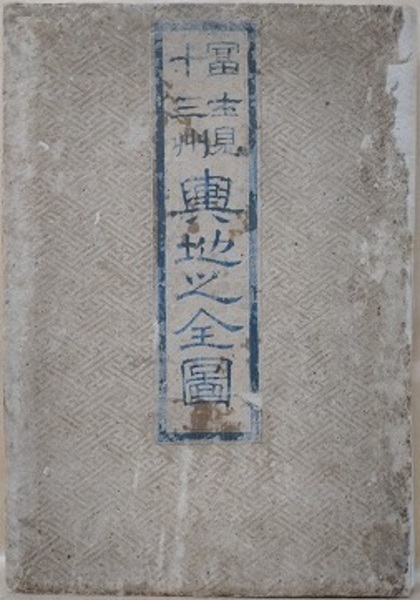 富士見
十三州
輿地之全圖